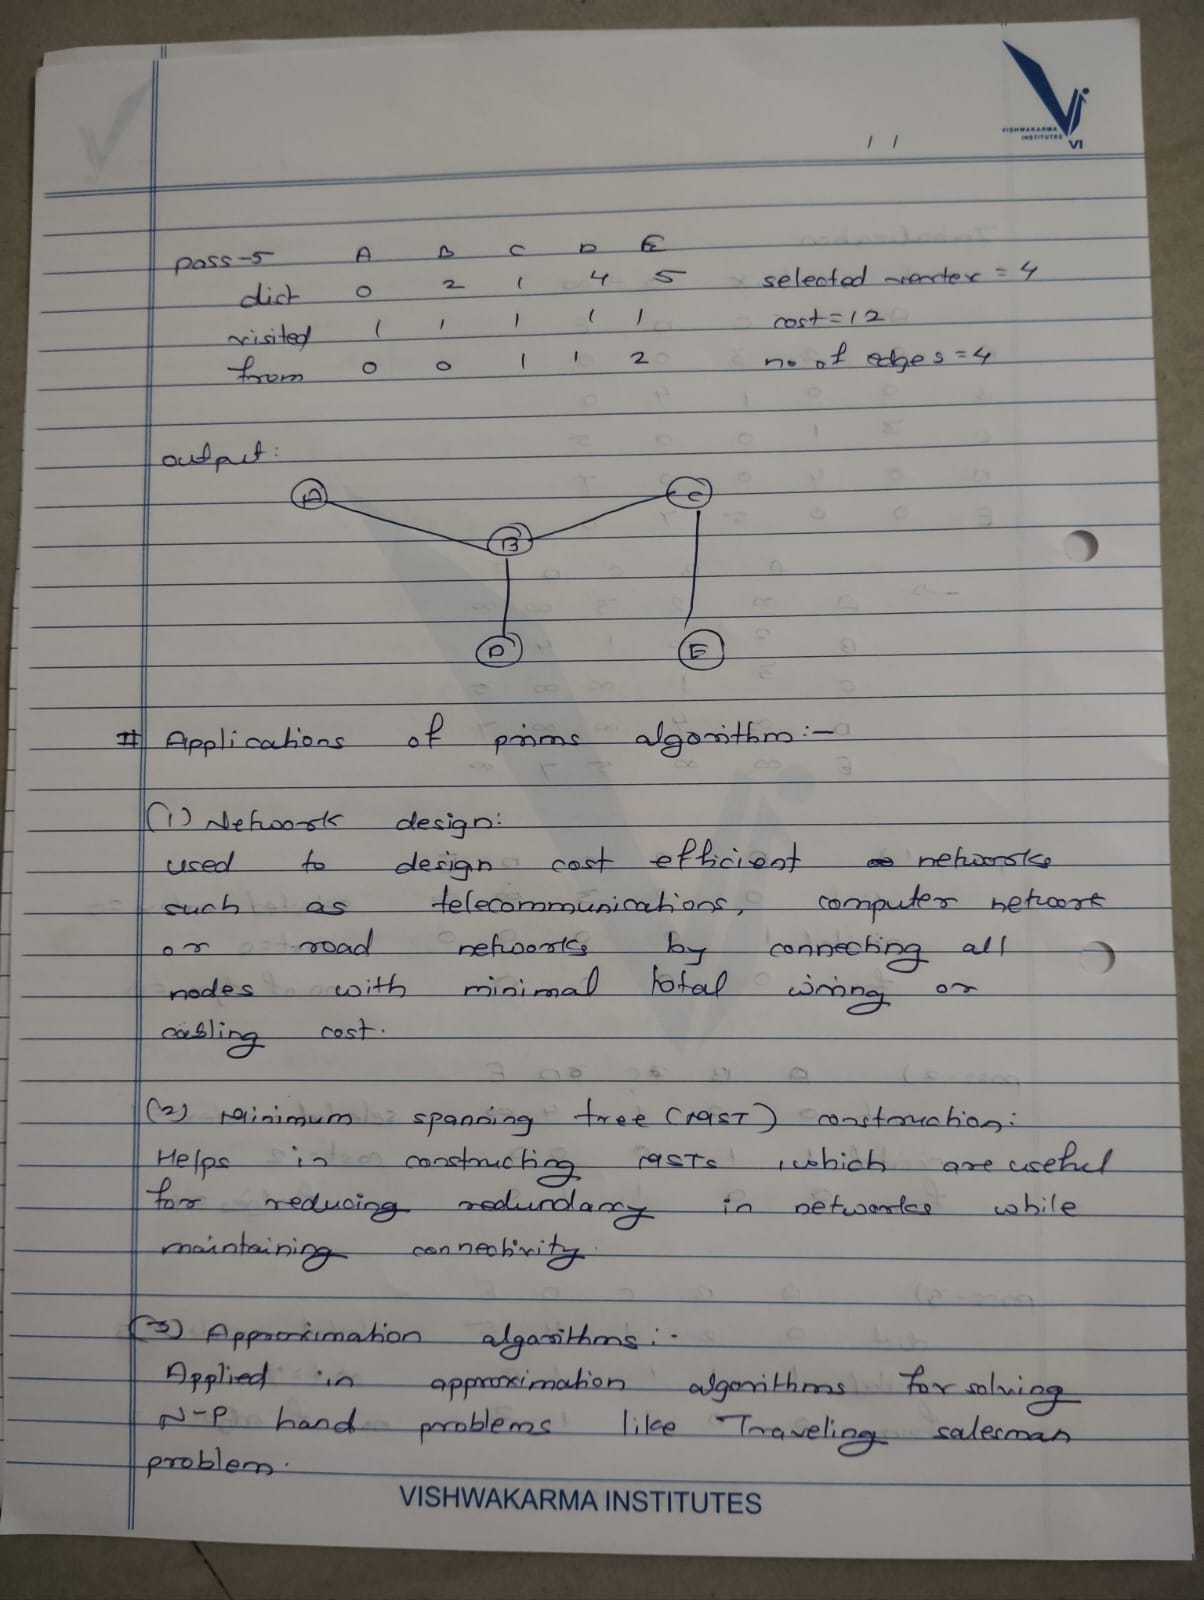 VISHWAKARMA
INSTITUTES
VI
/ /
pass-5 A B C D E
dict 0 2 1 4 5 selected vertex = 4
visited 1 1 1 1 1 cost = 12
from 0 0 1 1 2 no of edges = 4
output:
A C
B
D E
# Applications of prims algorithm:-
(1) Network design:
used to design cost efficient networks
such as telecommunications, computer network
or road networks by connecting all
nodes with minimal total wiring or
cabling cost.
(2) Minimum spanning tree (MST) construction:
Helps in constructing MSTs, which are useful
for reducing redundancy in networks while
maintaining connectivity.
(3) Approximation algorithms:-
Applied in approximation algorithms for solving
N-P hard problems like Traveling salesman
problem.
VISHWAKARMA INSTITUTES